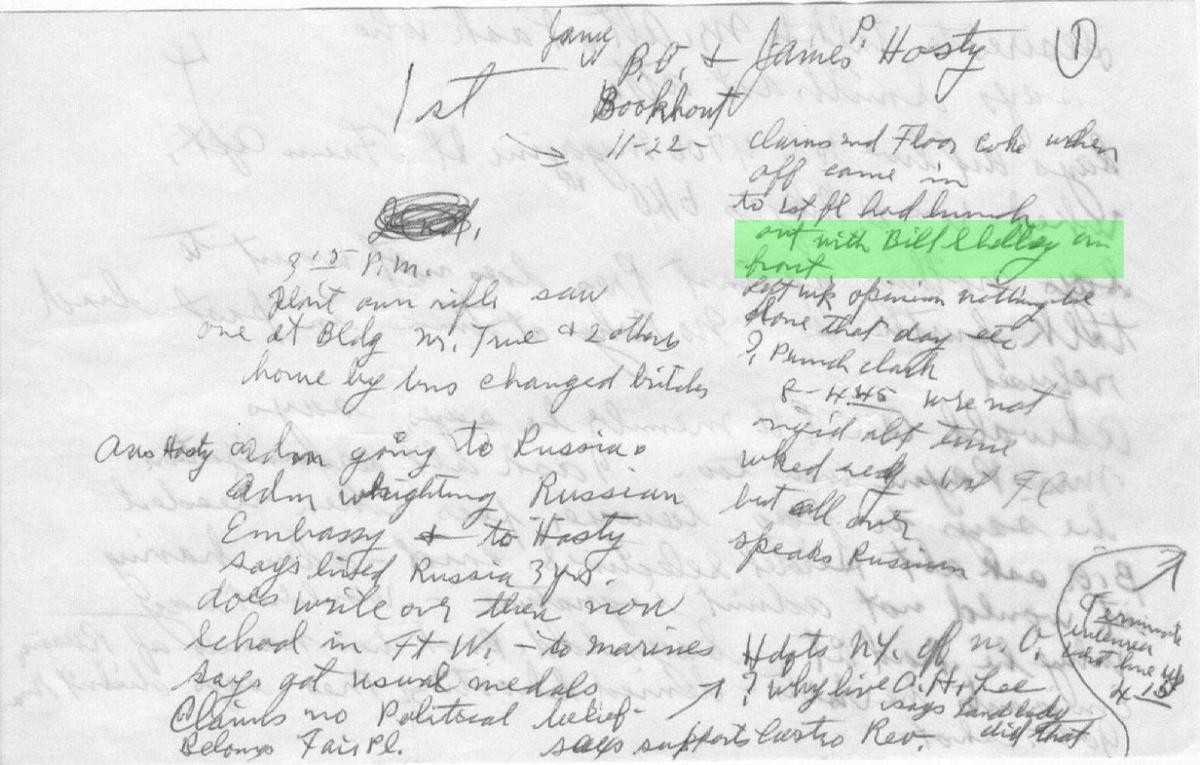 1st
Jame W
B.O. + James P. Hosty
①
Bookhout
11-22-
3 15 P.M.
dont own rifle saw
one at Bldg Mr. True + 2 others
home by bus changed britches
Ans Hosty adm going to Russia.
adm wrighting Russian
Embassy + to Hosty
says lived Russia 3 yrs.
does write over then now
school in Ft W. - to marines
says got usual medals
claims no Political belief
Belongs Fair Pl.
claims 2nd Floor coke when
off came in
to 1st fl had lunch
out with Bill Shelley in
front
left wk opinion nothing be
done that day etc
? Punch clock
8-4 45 wre not
rigid abt time
wked reg 1st Fl
but all over
speaks Russian
Hdqts NY. off N. O.
? why live O. H. Lee
says landlady
did that
says supports Castro Rev.
Terminate
interview
with line up
4 15